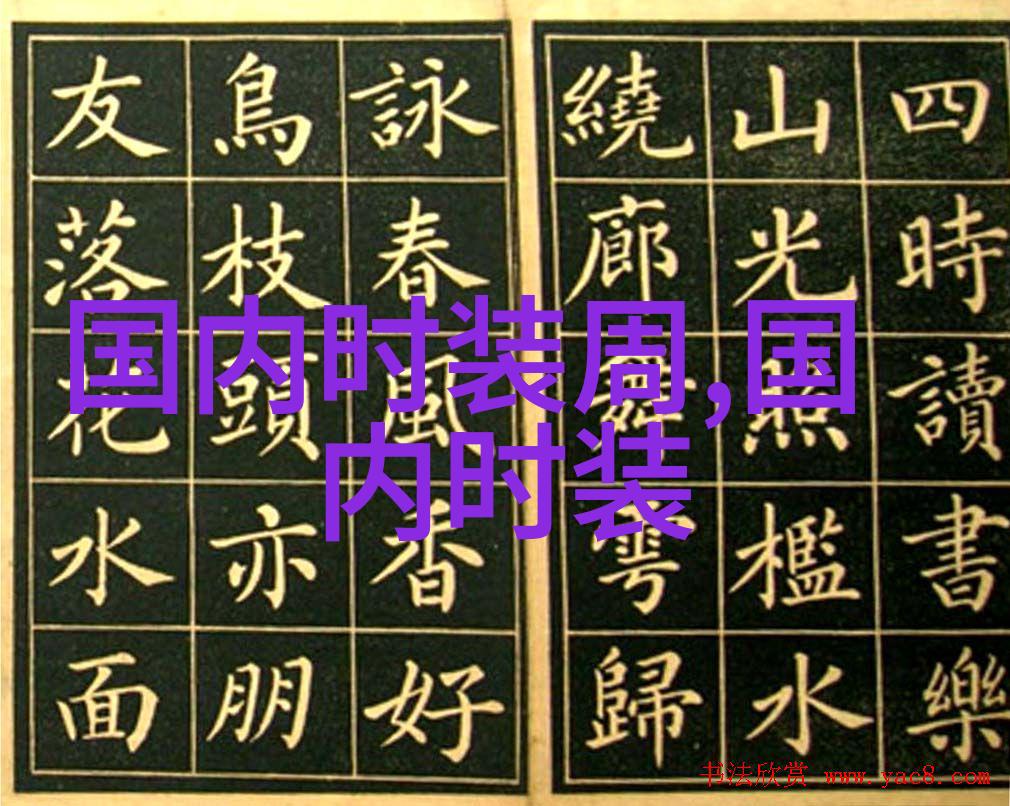 四時讀書樂
山光照檻水
繞廊舞雩歸
詠春風香好
鳥枝頭亦朋
友落花水面
国内时装周,国
内时装
书法欣赏 www.yac8.com